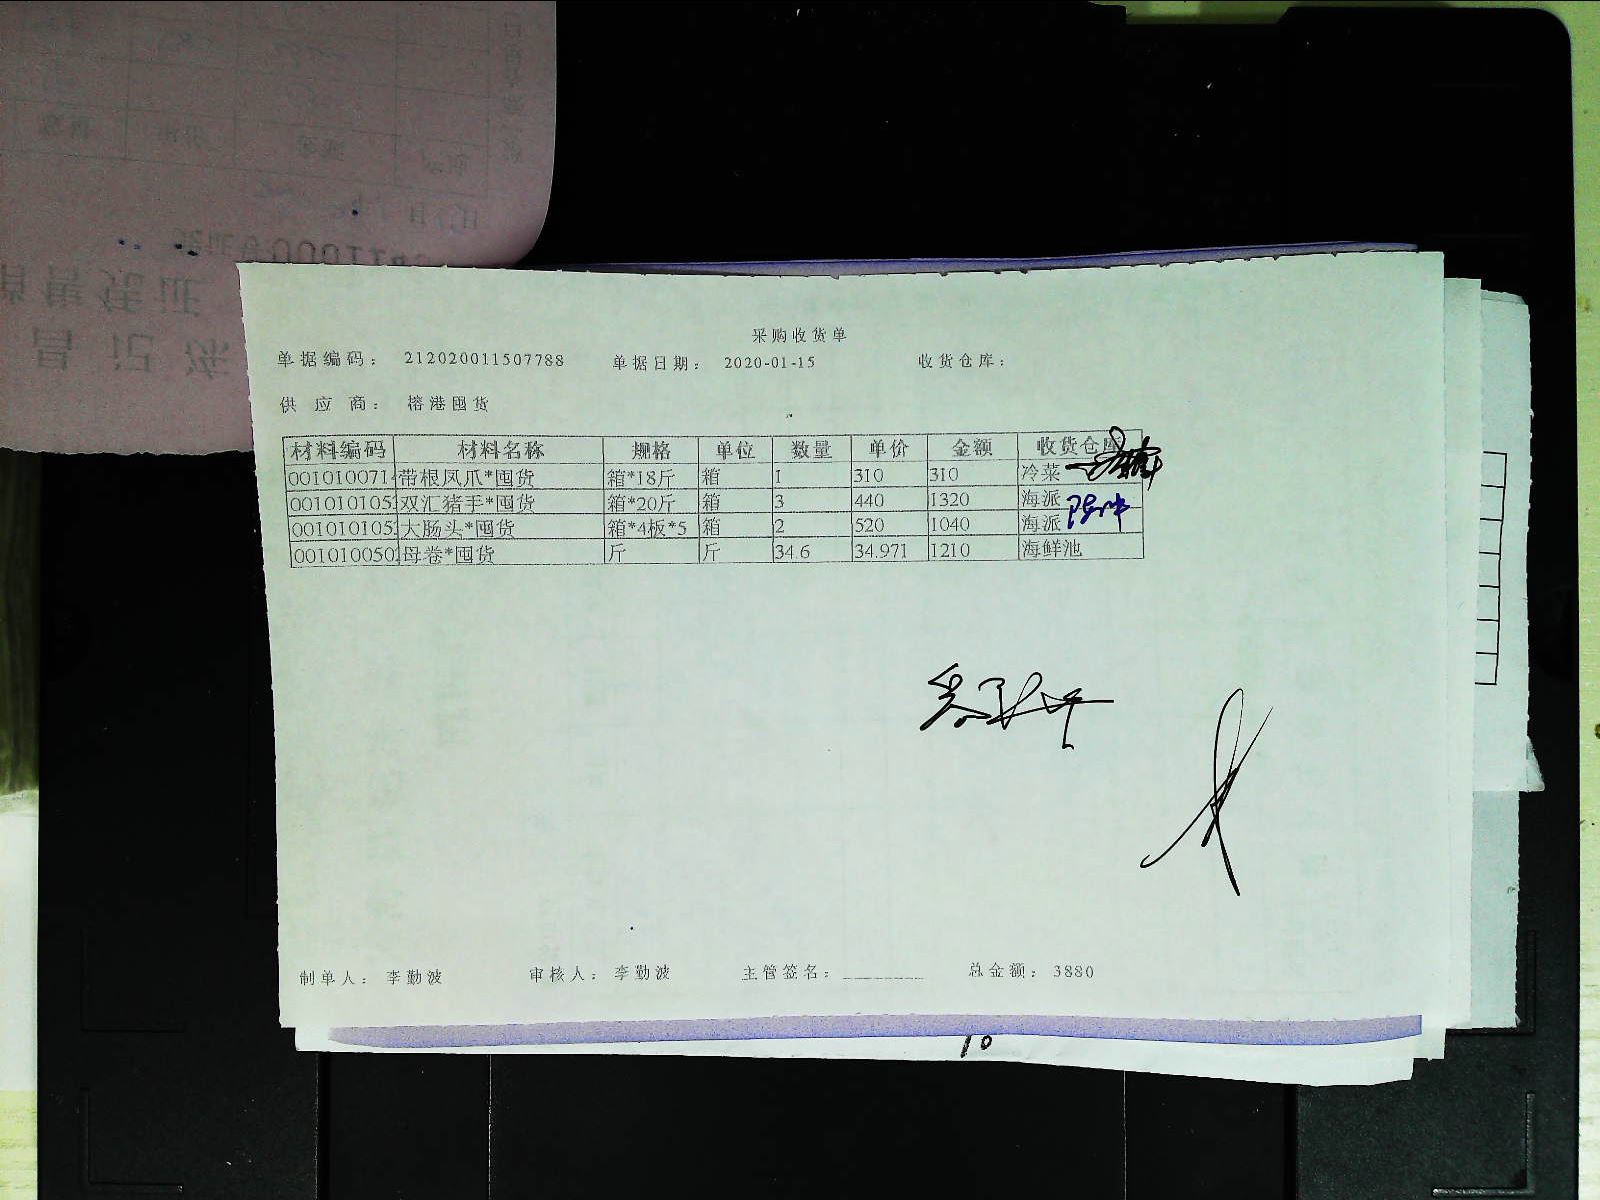 采购收货单
单据编码： 212020011507788 单据日期： 2020-01-15 收货仓库：
供 应 商： 榕港囤货
材料编码 材料名称 规格 单位 数量 单价 金额 收货仓库
001010071 带根凤爪*囤货 箱*18斤 箱 1 310 310 冷菜
001010105 双汇猪手*囤货 箱*20斤 箱 3 440 1320 海派
001010105 大肠头*囤货 箱*4板*5 箱 2 520 1040 海派
001010050 母卷*囤货 斤 斤 34.6 34.971 1210 海鲜池
制单人： 李勤波 审核人： 李勤波 主管签名： 总金额： 3880
10